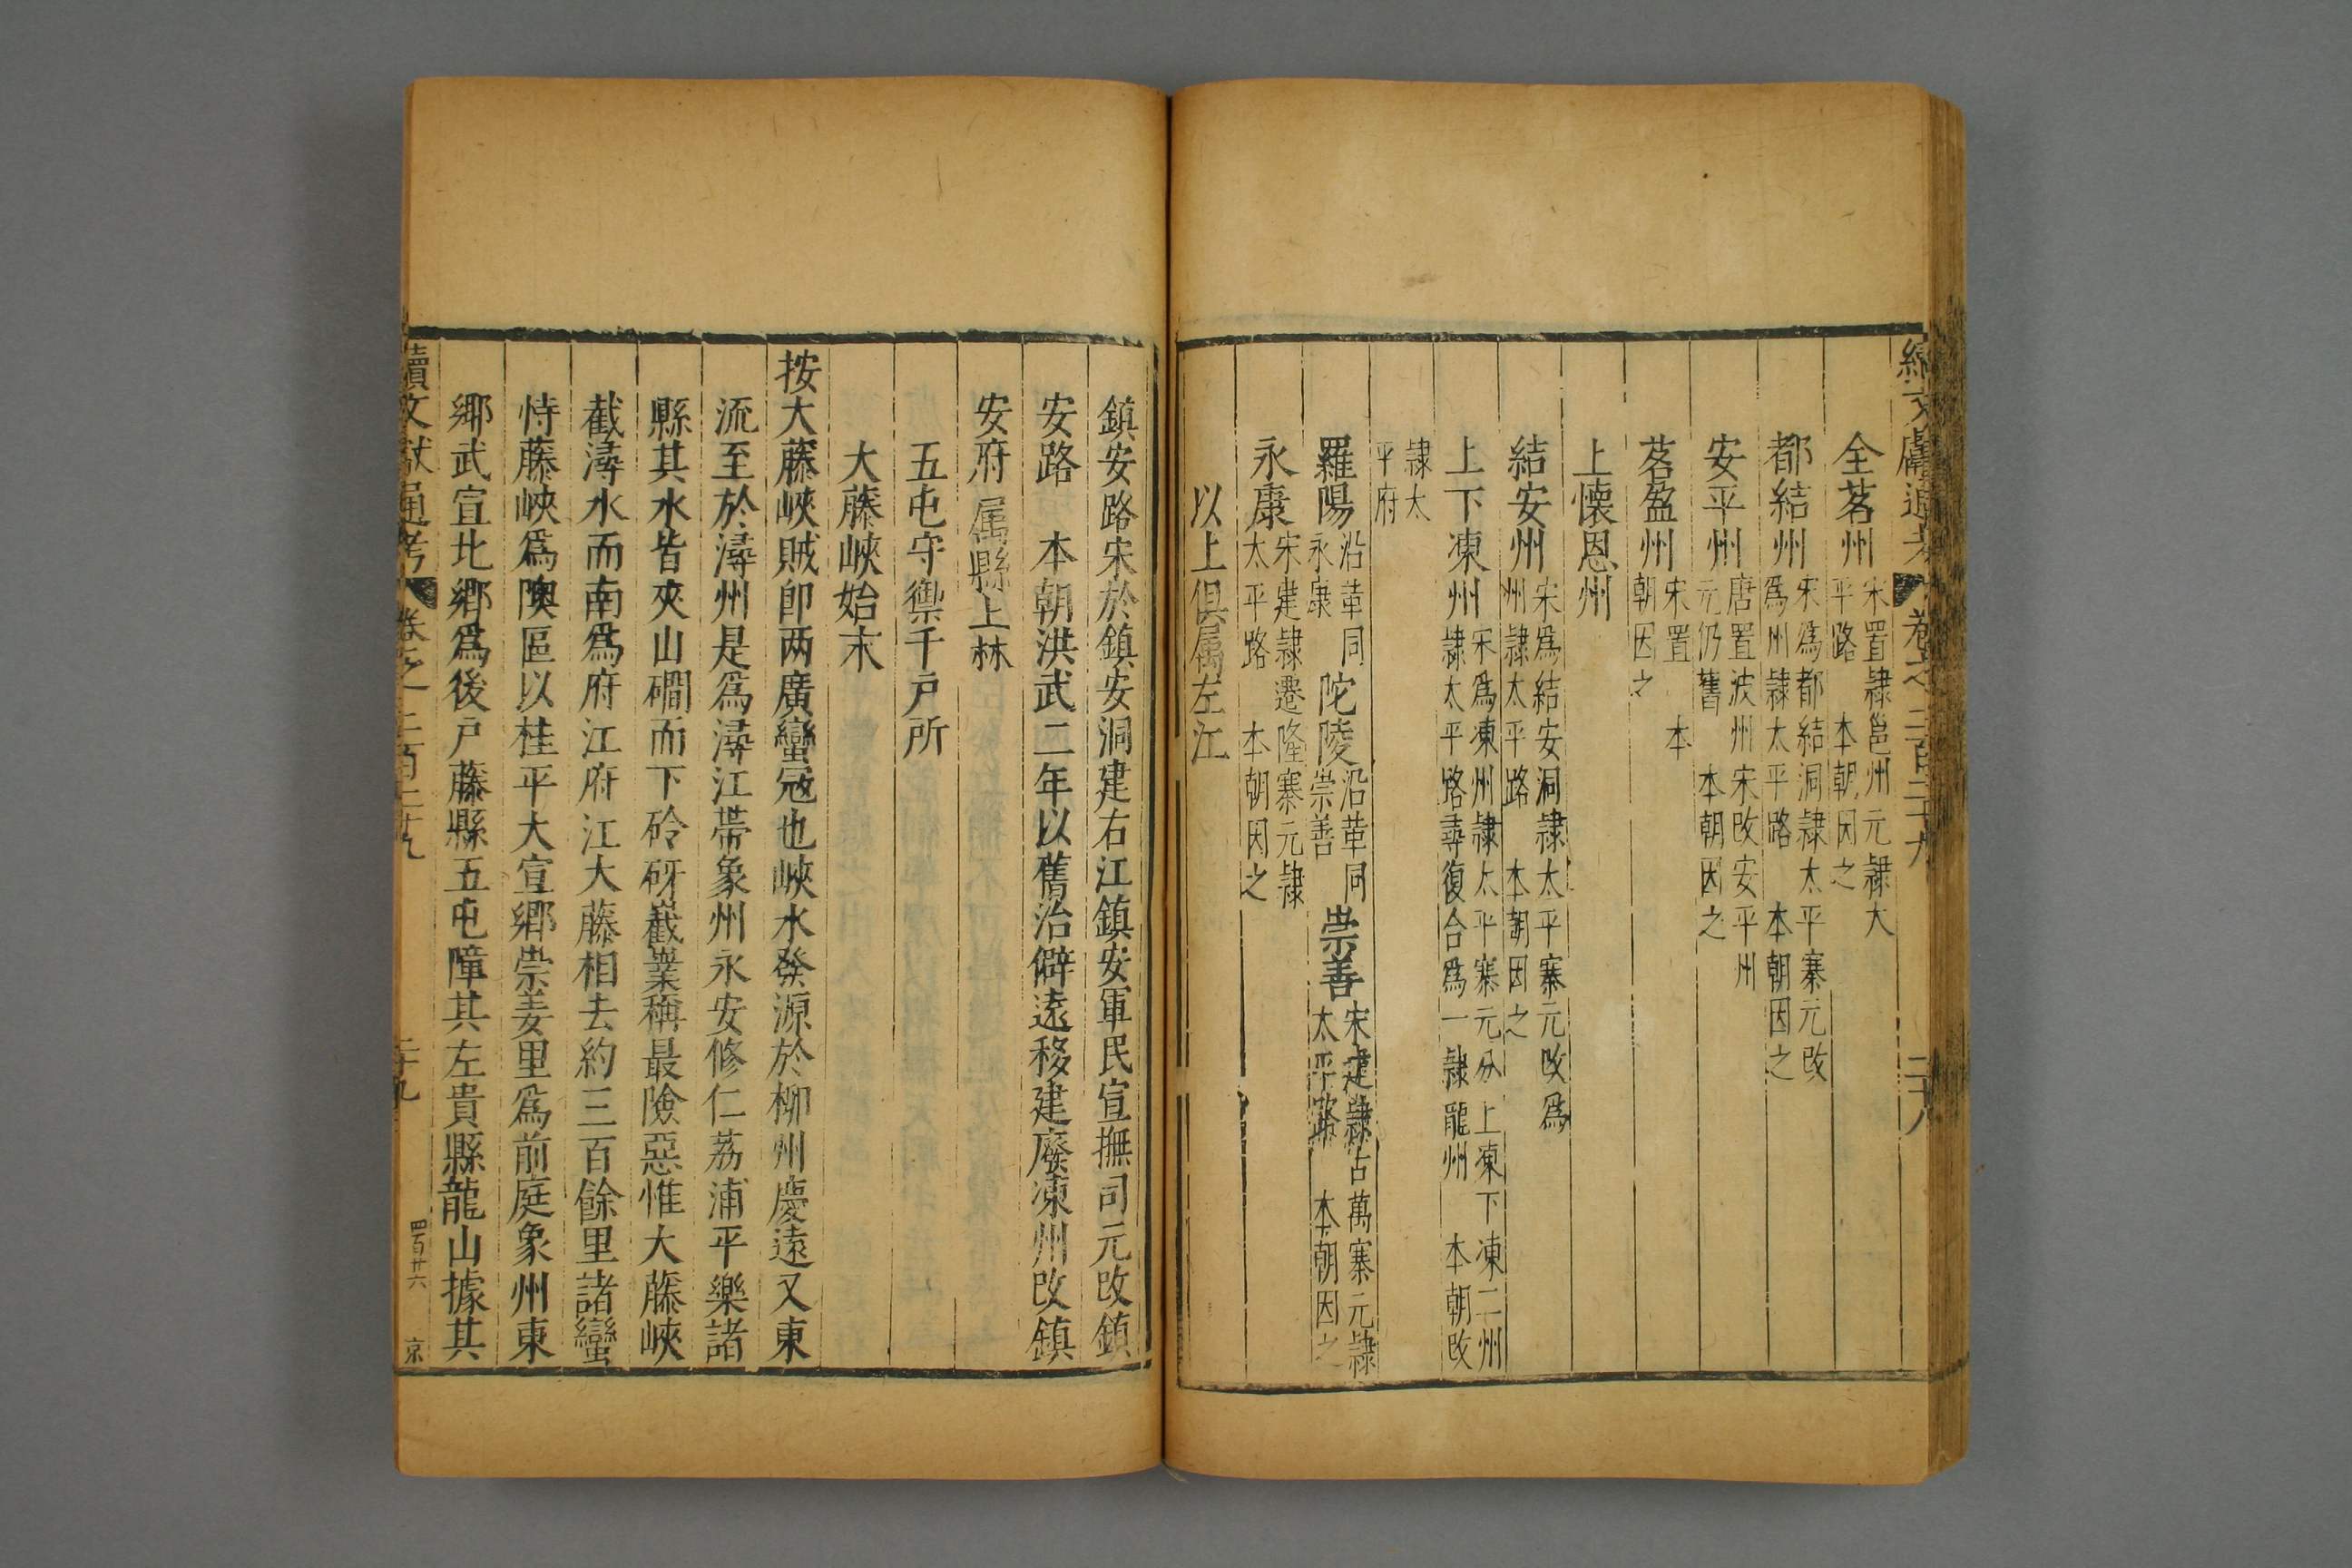 續文獻通考 卷之二百三十九 二十八
全茗州 宋置隷邕州元隷太平路 本朝因之
都結州 宋爲都結洞隷太平寨元改爲州隷太平路 本朝因之
安平州 唐置波州宋改安平州元仍舊 本朝因之
茗盈州 宋置 本朝因之
上懷恩州
結安州 宋爲結安洞隷太平寨元改爲州隷太平路 本朝因之
上下凍州 宋爲凍州隷太平寨元分上凍下凍二州隷太平路尋復合爲一隷龍州 本朝改
隷太平府
羅陽 沿革同永康 陀陵 沿革同崇善 崇善 宋建隷古萬寨元隷太平路 本朝因之
永康 宋建隷遷隆寨元隷太平路 本朝因之
以上俱属左江
鎮安路宋於鎮安洞建右江鎮安軍民宣撫司元改鎮
安路 本朝洪武二年以舊治僻遠移建廢凍州改鎮
安府 属縣上林
五屯守禦千户所
大藤峽始末
按大藤峽賊卽两廣蠻冦也峽水發源於柳州慶遠又東
流至於潯州是爲潯江帶象州永安修仁荔浦平樂諸
縣其水皆夾山磵而下硶砑嶻嶪稱最險惡惟大藤峽
截潯水而南爲府江府江大藤相去約三百餘里諸蠻
恃藤峽爲隩區以桂平大宣郷崇姜里爲前庭象州東
郷武宣北郷爲後户藤縣五屯障其左貴縣龍山據其
續文獻通考 卷之二百三十九 二十九 四百廿六 京